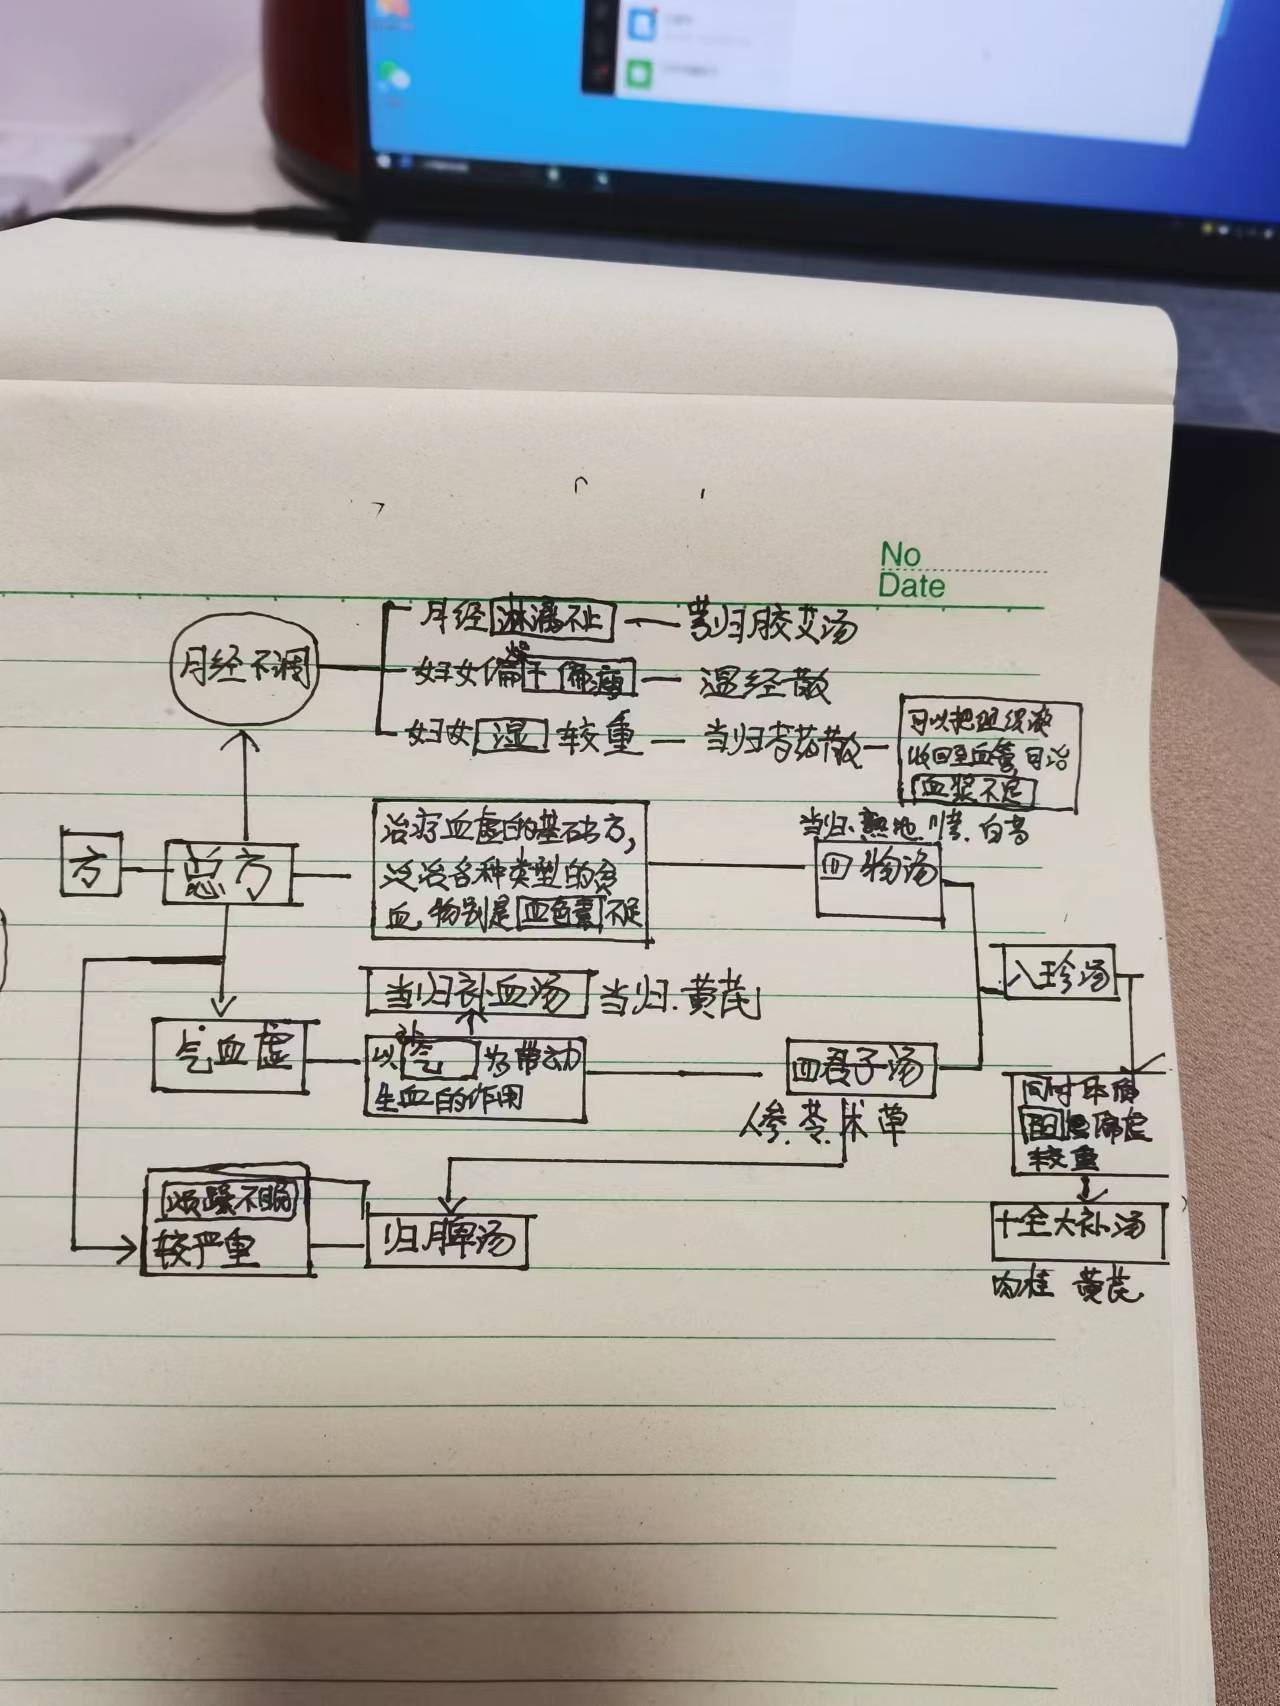 No
Date
月经淋漓不止
芎归胶艾汤
月经不调
妇女偏干偏瘦
温经散
妇女湿较重
当归芍药散
可以把组织液
收回至血管,可治
血浆不足
当归.熟地.川芎.白芍
方
总方
治疗血虚的基础方,
泛治各种类型的贫
血,特别是血色素不足
四物汤
八珍汤
当归补血汤
当归.黄芪
气血虚
以补气为带动
生血的作用
四君子汤
人参.苓.术草
同时
阳虚
较重
烦躁不眠
较严重
归脾汤
十全大补汤
肉桂 黄芪